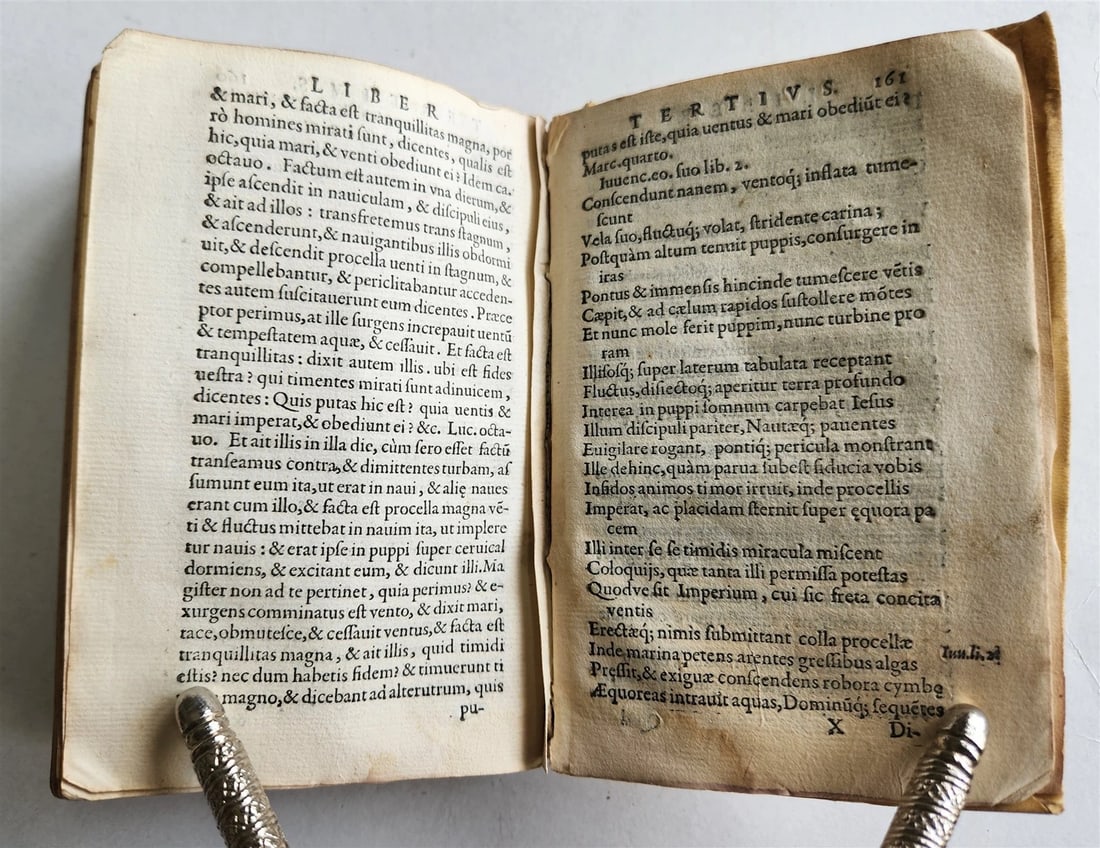 LIBER
& mari, & facta est tranquillitas magna, por
rò homines mirati sunt, dicentes, qualis est
hic, quia mari, & venti obediunt ei? Idem ca.
octauo. Factum est autem in vna dierum, &
ipse ascendit in nauiculam, & discipuli eius,
& ait ad illos: transfretemus trans stagnum,
& ascenderunt, & nauigantibus illis obdormi
uit, & descendit procella uenti in stagnum, &
compellebantur, & periclitabantur acceden-
tes autem suscitauerunt eum dicentes. Præce
ptor perimus, at ille surgens increpauit uentũ
& tempestatem aquæ, & cessauit. Et facta est
tranquillitas: dixit autem illis. ubi est fides
uestra? qui timentes mirati sunt adinuicem,
dicentes: Quis putas hic est? quia uentis &
mari imperat, & obediunt ei? &c. Luc. octa-
uo. Et ait illis in illa die, cùm sero esset factũ
transeamus contra, & dimittentes turbam, as
sumunt eum ita, ut erat in naui, & alię naues
erant cum illo, & facta est procella magna vē-
ti & fluctus mittebat in nauim ita, ut implere
tur nauis: & erat ipse in puppi super ceruical
dormiens, & excitant eum, & dicunt illi. Ma
gister non ad te pertinet, quia perimus? & e-
xurgens comminatus est vento, & dixit mari,
tace, obmutesce, & cessauit ventus, & facta est
tranquillitas magna, & ait illis, quid timidi
estis? nec dum habetis fidem? & timuerunt ti
magno, & dicebant ad alterutrum, quis
pu-
TERTIVS. 161
putas est iste, quia uentus & mari obediũt ei?
Marc. quarto.
Iuuenc. eo. suo lib. 2.
Conscendunt nanem, ventoq́; inflata tume-
scunt
Vela suo, fluctuq́; volat, stridente carina;
Postquàm altum tenuit puppis, consurgere in
iras
Pontus & immensis hincinde tumescere vẽtis
Cæpit, & ad cælum rapidos sustollere mõtes
Et nunc mole ferit puppim, nunc turbine pro
ram
Illisosq́; super laterum tabulata receptant
Fluctus, disiectoq́; aperitur terra profundo
Interea in puppi somnum carpebat Iesus
Illum discipuli pariter, Nautæq́; pauentes
Euigilare rogant, pontiq́; pericula monstrant
Ille dehinc, quàm parua subest fiducia vobis
Infidos animos timor irruit, inde procellis
Imperat, ac placidam sternit super ęquora pa
cem
Illi inter se se timidis miracula miscent
Coloquijs, quæ tanta illi permissa potestas
Quodve sit Imperium, cui sic freta concita
ventis
Erectæq́; nimis submittant colla procellæ
Inde marina petens arentes gressibus algas
Iuu. li. 2.
Pressit, & exiguæ conscendens robora cymbę
Æquoreas intrauit aquas, Dominũq́; sequẽtes
X Di-